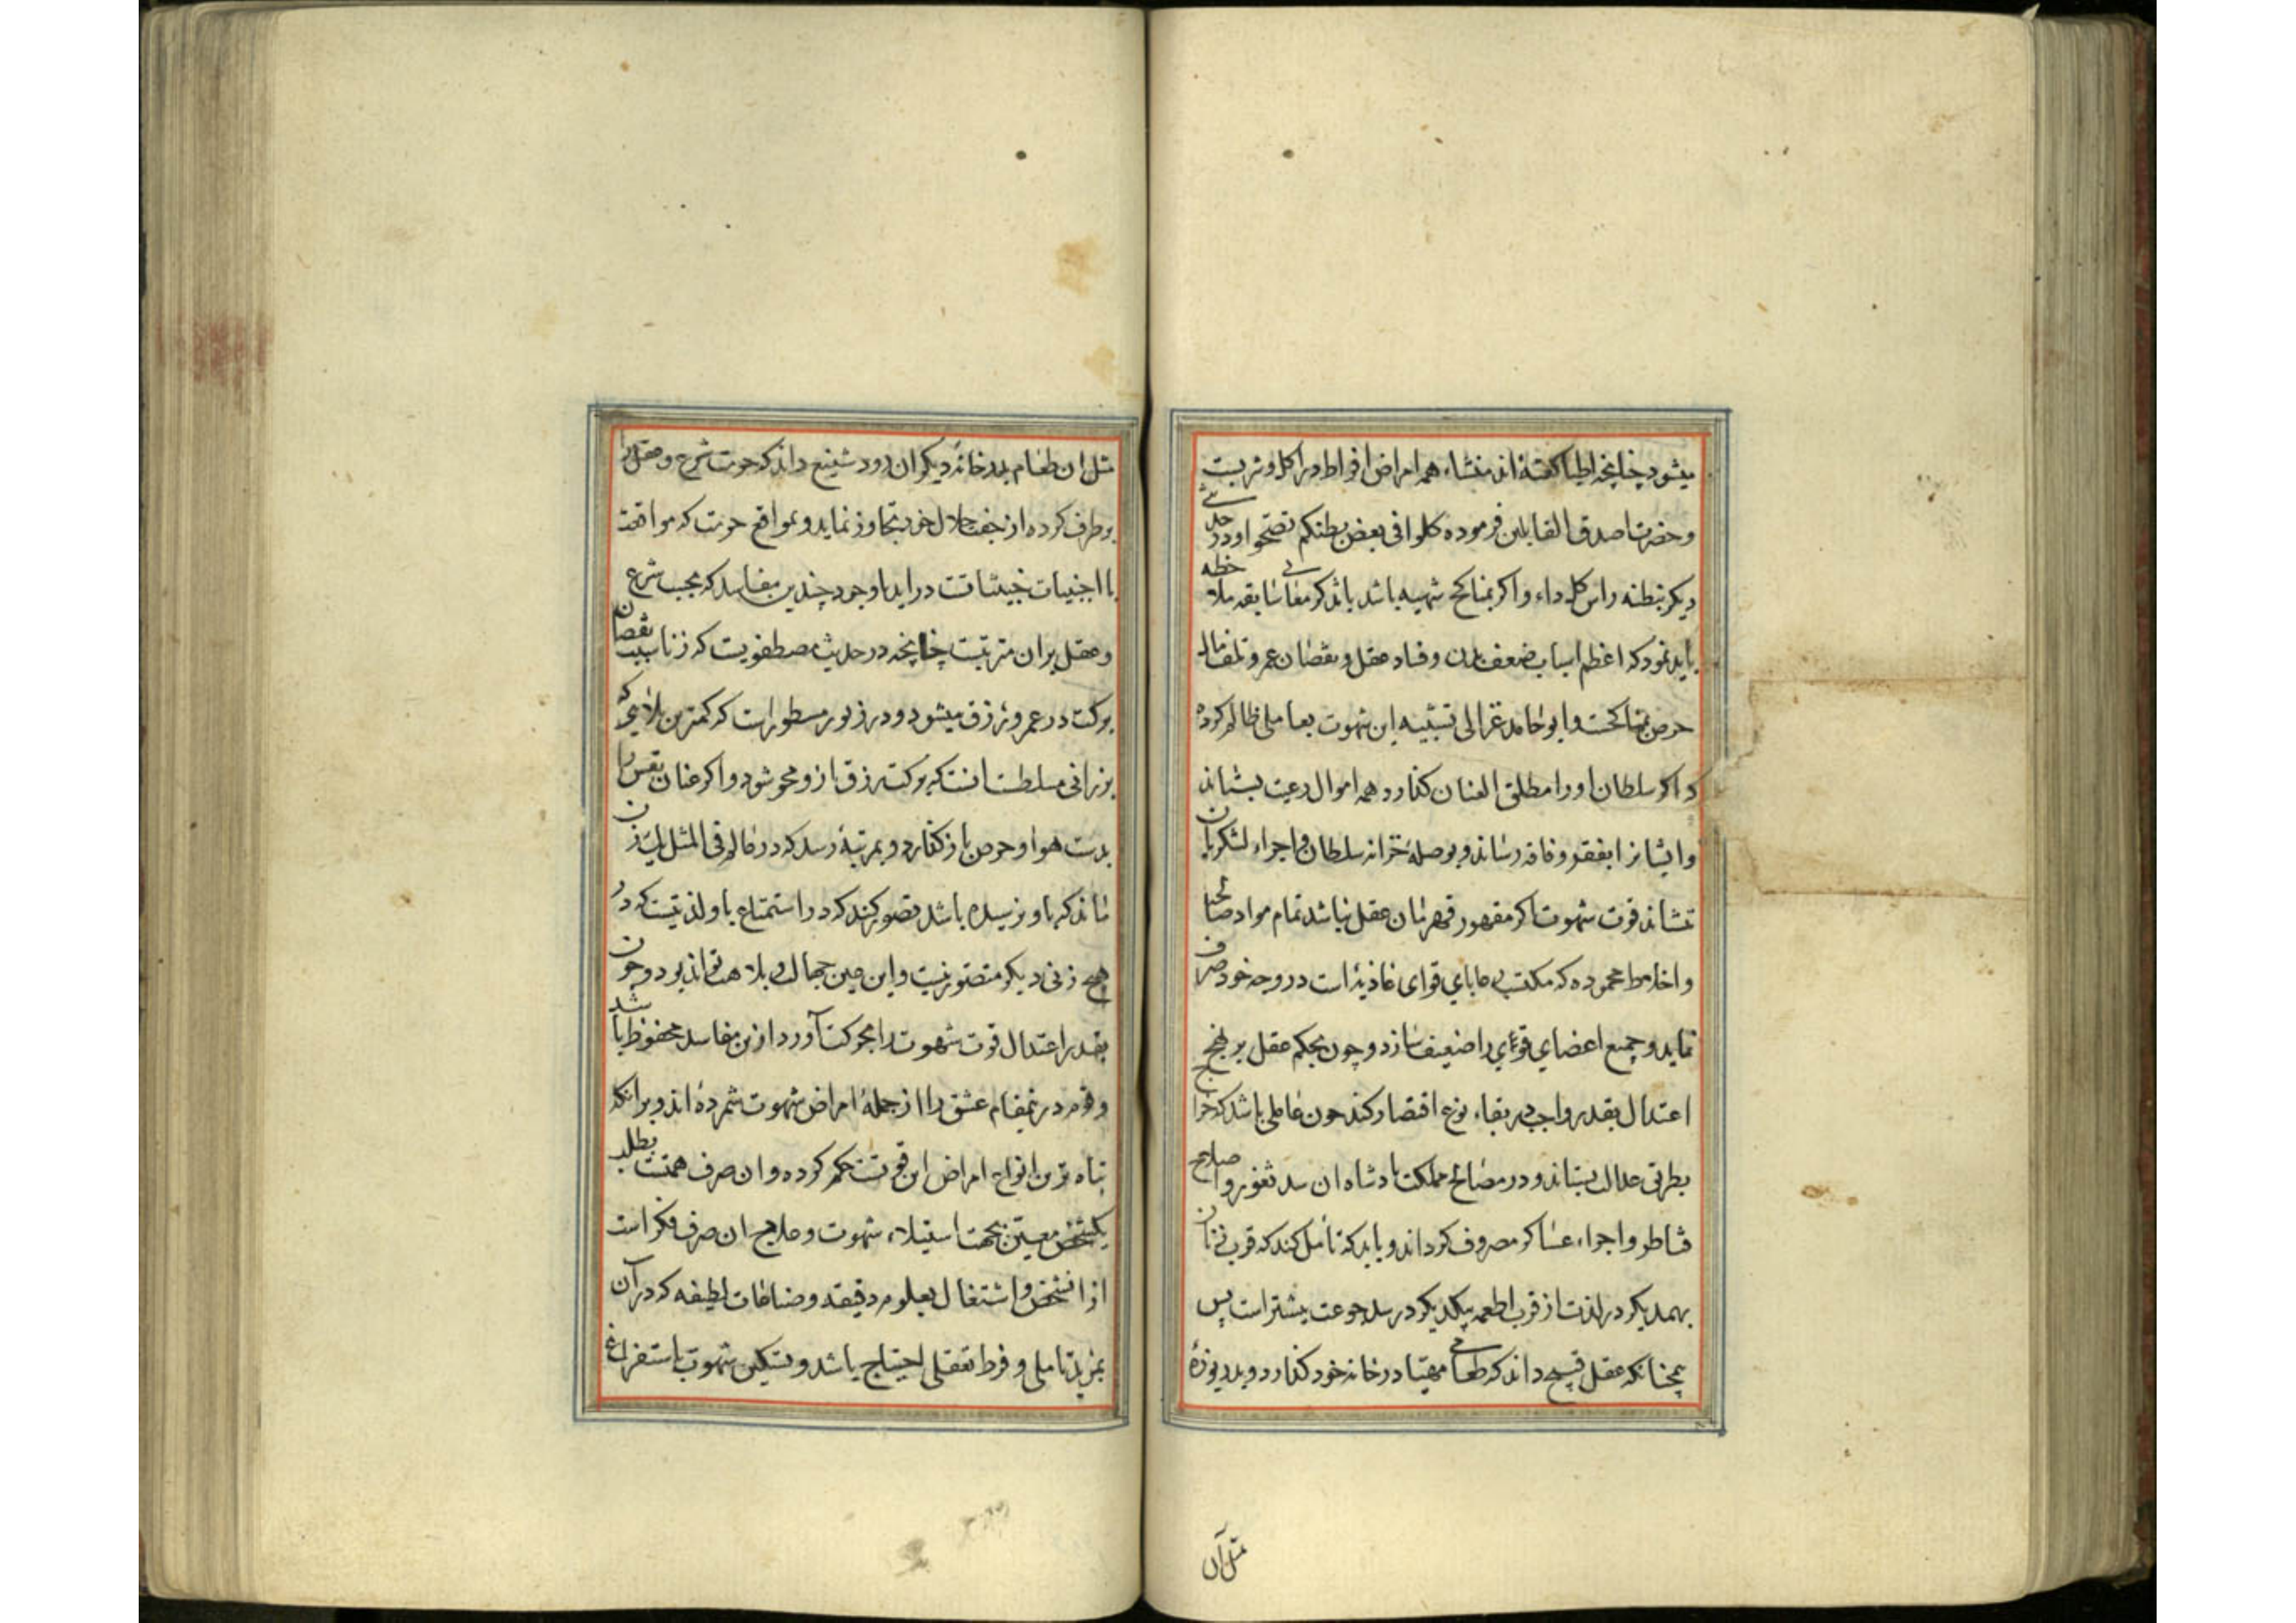 میشود چنانچه اطبا کفته‌اند منشاء همه امراض افراط در اکل و شربست
و حضرت اصدق القایلین فرموده کلوا فی بعض بطنکم تصحوا و در حدیثی
دیکر البطنه راس کل داء و اکر بمناکح شهیه باشد باز ذکر مفاسد سابقه ملاحظه
باید نمود که اعظم اسباب ضعف بدن و فساد عقل و نقصان عمر و تلف مال
حرص بمناکحتست و ابوحامد غزالی تشبیه این شهوت بعاملی ظالم کرده
که اکر سلطان او را مطلق العنان کذارد همه اموال رعیت بستاند
و ایشانرا بفقر و فاقه رساند و بوصله خزانه سلطان و اجراء لشکریان
نتشاند قوت شهوت اکر مقهور قهرمان عقل نباشد تمام مواد صالح
و اخلاط محموده که مکتسب جابای قوای غاذیه است در وجه خود صرف
نماید و جمیع اعضای و قوای را ضعیف سازد و چون بحکم عقل بر نهج
اعتدال بقدر واجب در بقاء نوع اقتصار کند چون عاملی باشد که خراج
بطریق عدالت بستاند و در مصالح مملکت پادشاه ان سد ثغور و اصلاح
قناطر و اجراء عساکر مصروف کرداند و باید که تأمل کند که قرب زنان
بهمدیکر در لذت از قرب اطعمه بیکدیکر در سد جوعت بیشتر است پس
همچنانکه عقل قبیح داند که طعامی مهیا در خانه خود کذارد و بدریوزه
مثل آن
مثل ان طعام بدر خانه دیکران رود شنیع داند که حرمت شرع و عقل را
برطرف کرده از جفت حلال خود تجاوز نماید و بمواقع حرمت که مواقعت
با اجنبیات خبیثاتست در اید با وجود چندین مفاسد که بحسب شرع
و عقل بران مترتبست چنانچه در حدیث مصطفویست که زنا سبب نقصان
برکت در عمر و رزق میشود و در زبور مسطورات که کمترین بلائی که
بر زانی مسلطست انست که برکت رزق از و محو شود و اکر عنان نفس را
بدست هوا و حرص باز کذارد و بمرتبه رسد که در عالم فی المثل یک زن
ماند که باو نرسیده باشد تصور کند که در استمتاع باو لذتیست که در
هیچ زنی دیکر متصور نیست و این عین جهالت و بلاهت تواند بود و چون
بقدر اعتدال قوت شهوت را بحرکت آورد ازین مفاسد محفوظ باشد
و قوم درین مقام عشق را از جمله امراض شهوت شمرده‌اند و برانکه
تباه ترین انواع امراض این قوتست حکم کرده و ان صرف همتست بطلب
یکشخص معین بجهت استیلاء شهوت و علاج ان صرف فکر است
از انشخص و اشتغال بعلوم دقیقه و صناعات لطیفه که در آن
بمزید تاملی و فرط تعقلی احتیاج باشد و تسکین شهوت باستفراغ